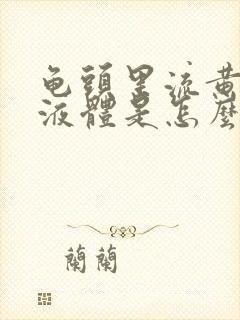 龟頭里流黄
液體是怎麼
蘭蘭